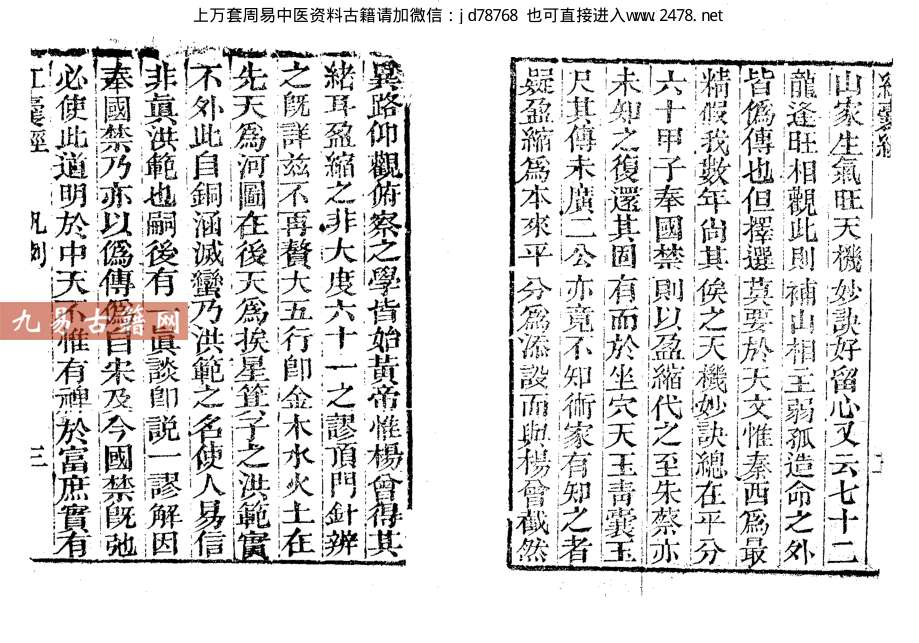 上万套周易中医资料古籍请加微信：jd78768 也可直接进入www.2478.net
山家生氣旺天機妙訣好留心又云七十二
龍逢旺相觀此則補山相王弱孤造命之外
皆僞傳也但擇選莫要於天文惟泰西爲最
精假我數年尚其俟之天機妙訣總在平分
六十甲子奉國禁則以盈縮代之至朱蔡亦
未知之復還其固有而於坐穴天玉靑囊玉
尺其傳未廣二公亦竟不知術家有知之者
疑盈縮爲本來平分爲添設而與楊曾截然
異路仰觀俯察之學皆始黃帝惟楊曾得其
緒耳盈縮之非大度六十一之謬頂門針辨
之旣詳茲不再贅大五行卽金木水火土在
先天爲河圖在後天爲挨星箕子之洪範實
不外此自銅涵滅蠻乃洪範之名使人易信
非眞洪範也嗣後有一眞談卽説一謬解因
奉國禁乃亦以僞傳僞自宋及今國禁旣弛
必使此道明於中天不惟有裨於富庶實有
囊經 凡例 三
九易古籍网